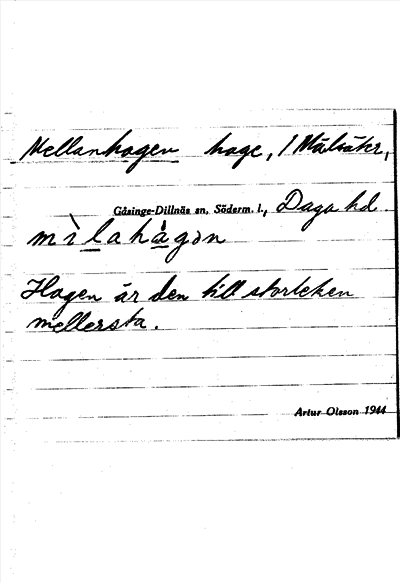 Mellanhagen hage, 1 Målsäkr,
Gåsinge-Dillnäs sn, Söderm. l., Daga hd.
mìlahågən
Hagen är den till storleken
mellersta.
Artur Olsson 1944